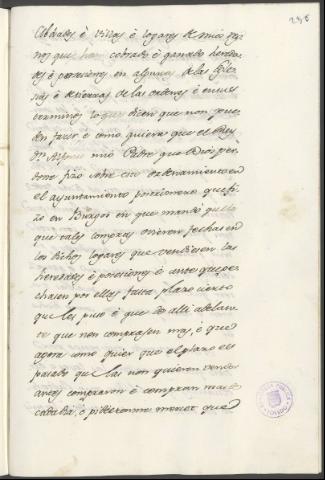 236
Cibdades è villas è logares de mios rey
nos que han cobrado è ganado hereda
des è posesiones en algunas de las Eglesi
as è de tierras de las ordenes è en sus
terminos lo que dicen que non pue
den facer è como quiera que el Rey
Dn. Alfonso mio Padre que Dios per
done fizo sobre esto ordenamiento en
el ayuntamiento postrimero que fi
zo en Burgos en que mandó quello
que tales compras ovieron fechas en
los dichos logares que vendiesen las
heredades è posesiones è ante que pe
chasen por ellas fasta plazo cierto
que les puso è que de alli adelan
te que non comprasen mas, è que
agora como quier que el plazo es
pasado que las non quieren vender
antes compraron è compran mas de
cada dia, è pidieronme merced que
BIBLIOTECA PUBLICA
TOLEDO